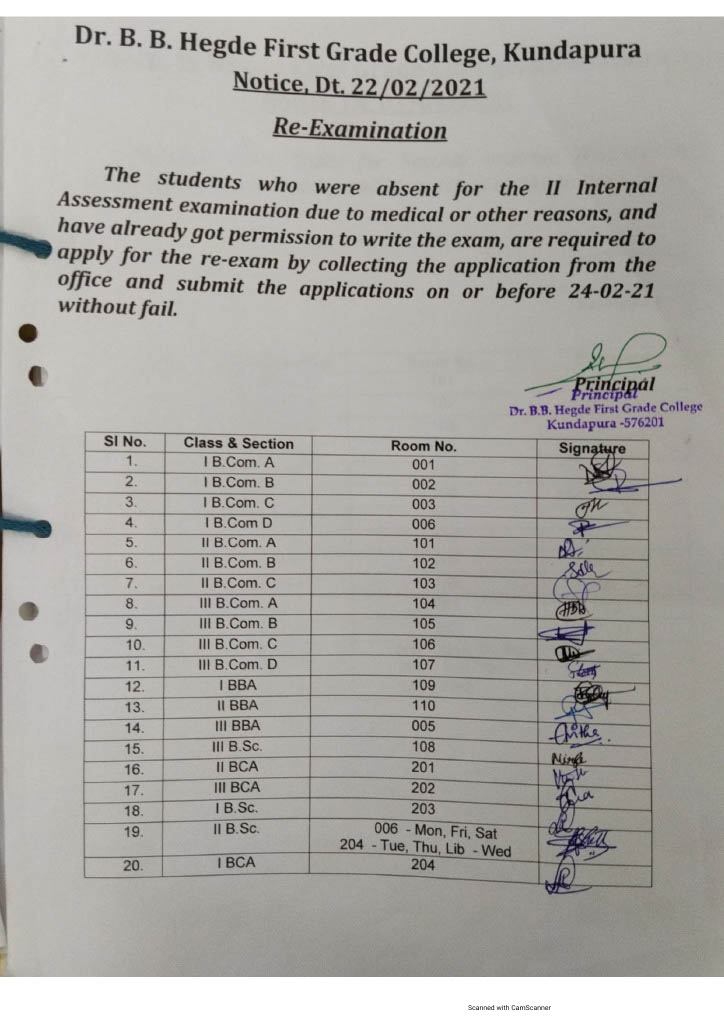 Dr. B. B. Hegde First Grade College, Kundapura
Notice, Dt. 22/02/2021
Re-Examination
The students who were absent for the II Internal
Assessment examination due to medical or other reasons, and
have already got permission to write the exam, are required to
apply for the re-exam by collecting the application from the
office and submit the applications on or before 24-02-21
without fail.
Principal
Principal
Dr. B.B. Hegde First Grade College
Kundapura -576201
Sl No. Class & Section Room No. Signature
1. I B.Com. A 001
2. I B.Com. B 002
3. I B.Com. C 003
4. I B.Com D 006
5. II B.Com. A 101
6. II B.Com. B 102
7. II B.Com. C 103
8. III B.Com. A 104
9. III B.Com. B 105
10. III B.Com. C 106
11. III B.Com. D 107
12. I BBA 109
13. II BBA 110
14. III BBA 005
15. III B.Sc. 108
16. II BCA 201
17. III BCA 202
18. I B.Sc. 203
19. II B.Sc. 006 - Mon, Fri, Sat
204 - Tue, Thu, Lib - Wed
20. I BCA 204
Scanned with CamScanner